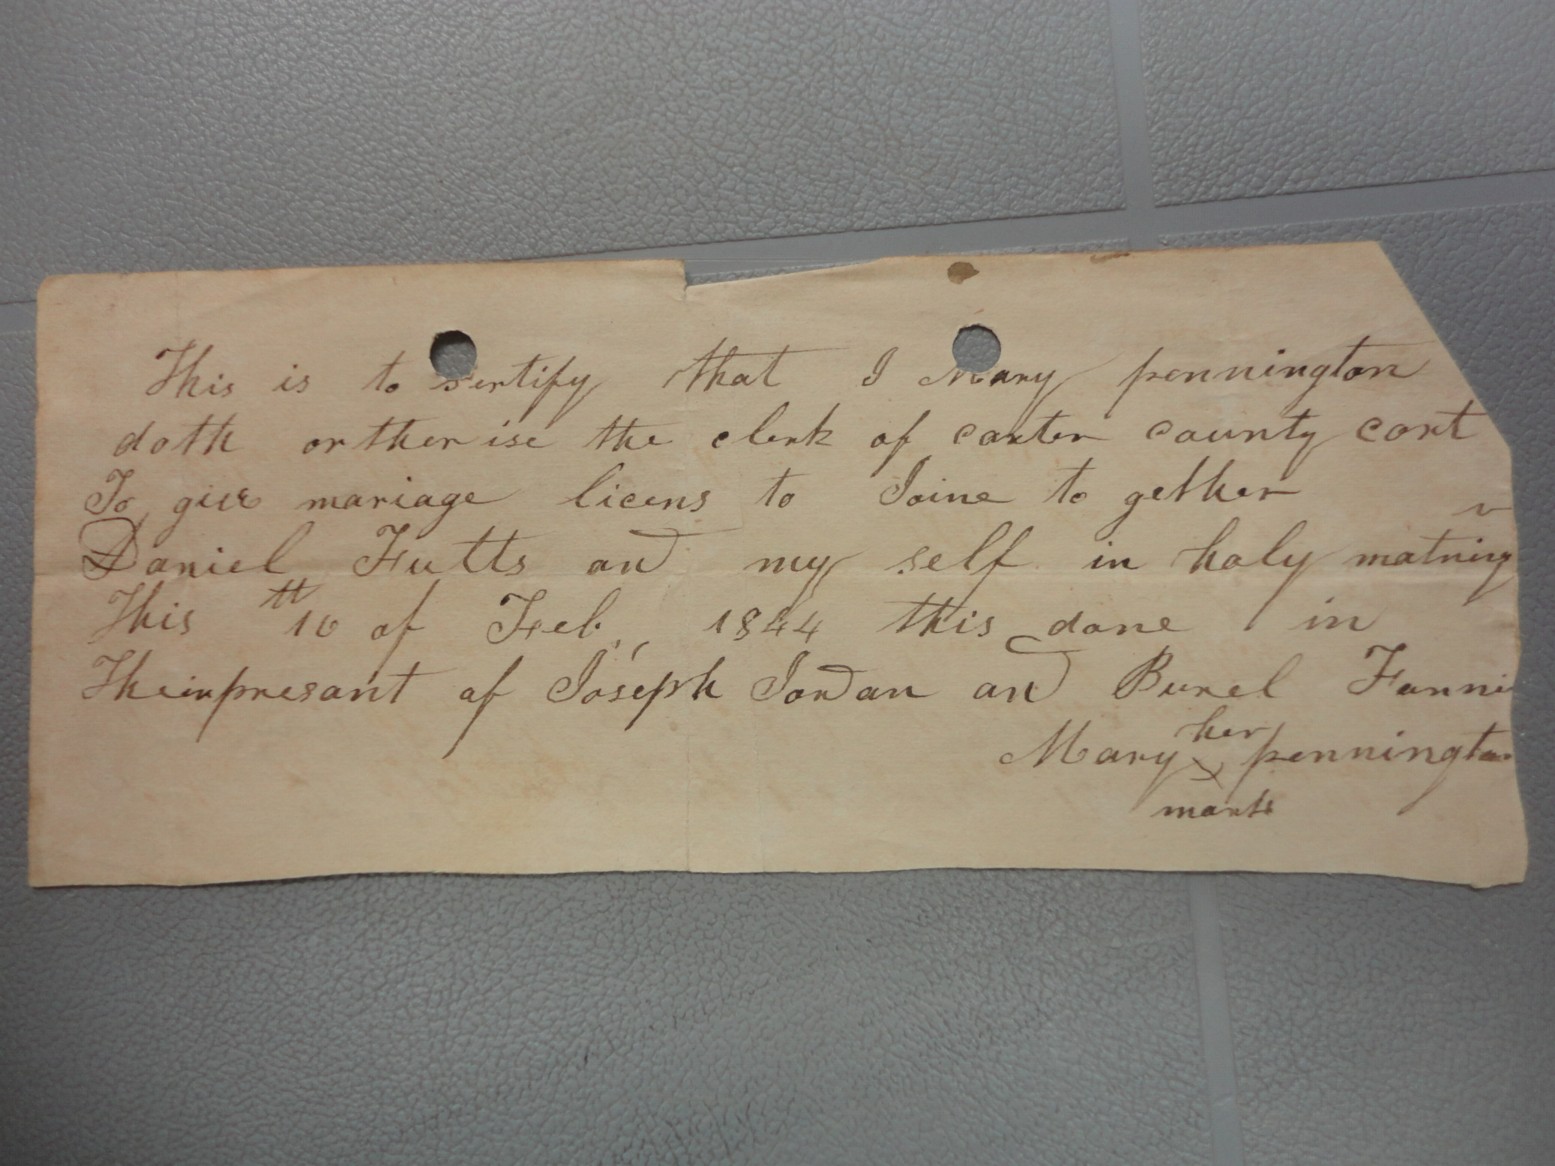 This is to sertify that I Mary pennington
doth ortherise the clerk of carter county cort
To give mariage licens to Joine to gether
Daniel Futts and my self in holy
This 16 tt of Feb. 1844 this done in
Theinpresant of Joseph Jordan and Burel Fanni
Mary her X pennington
mark